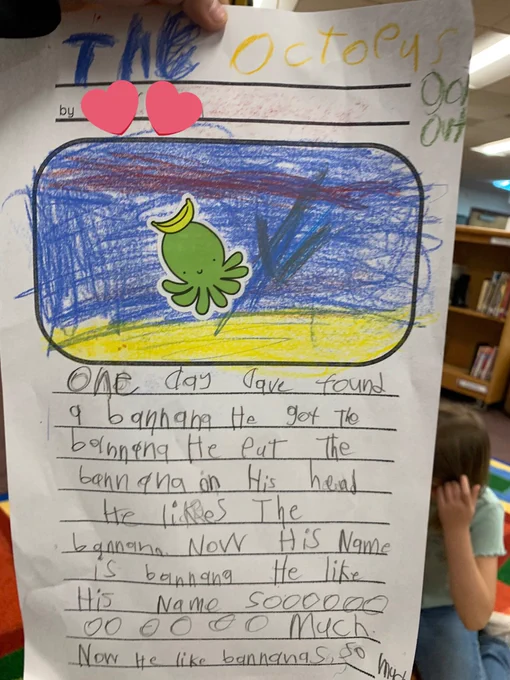 THE Octopus
by
One day Dave found
a bannana He got The
bannana He put The
bannana on His head
He likes The
bannana. NOW HiS Name
is bannana He like
His Name Soooooo
oo o o o o Much.
Now He like bannanas, so
Much